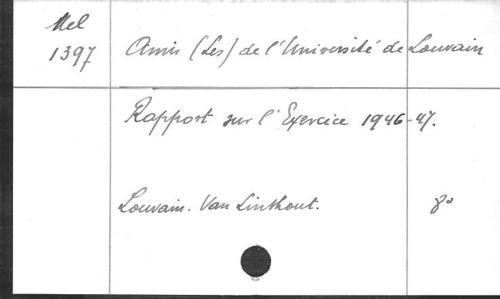 Mel
1397
Amis (Les) de l'Université de Louvain
Rapport sur l'Exercice 1946-47.
Louvain. Van Linthout.
8°